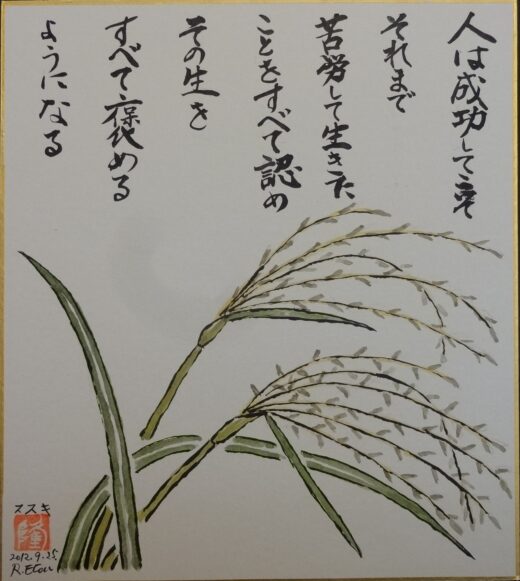 人は成功してこそ
それまで
苦労して生きた
ことをすべて認め
その生を
すべて褒める
ようになる
ススキ
隆
2012.9.25
R.Etou